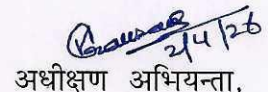 2/4/26
अधीक्षण अभियन्ता,